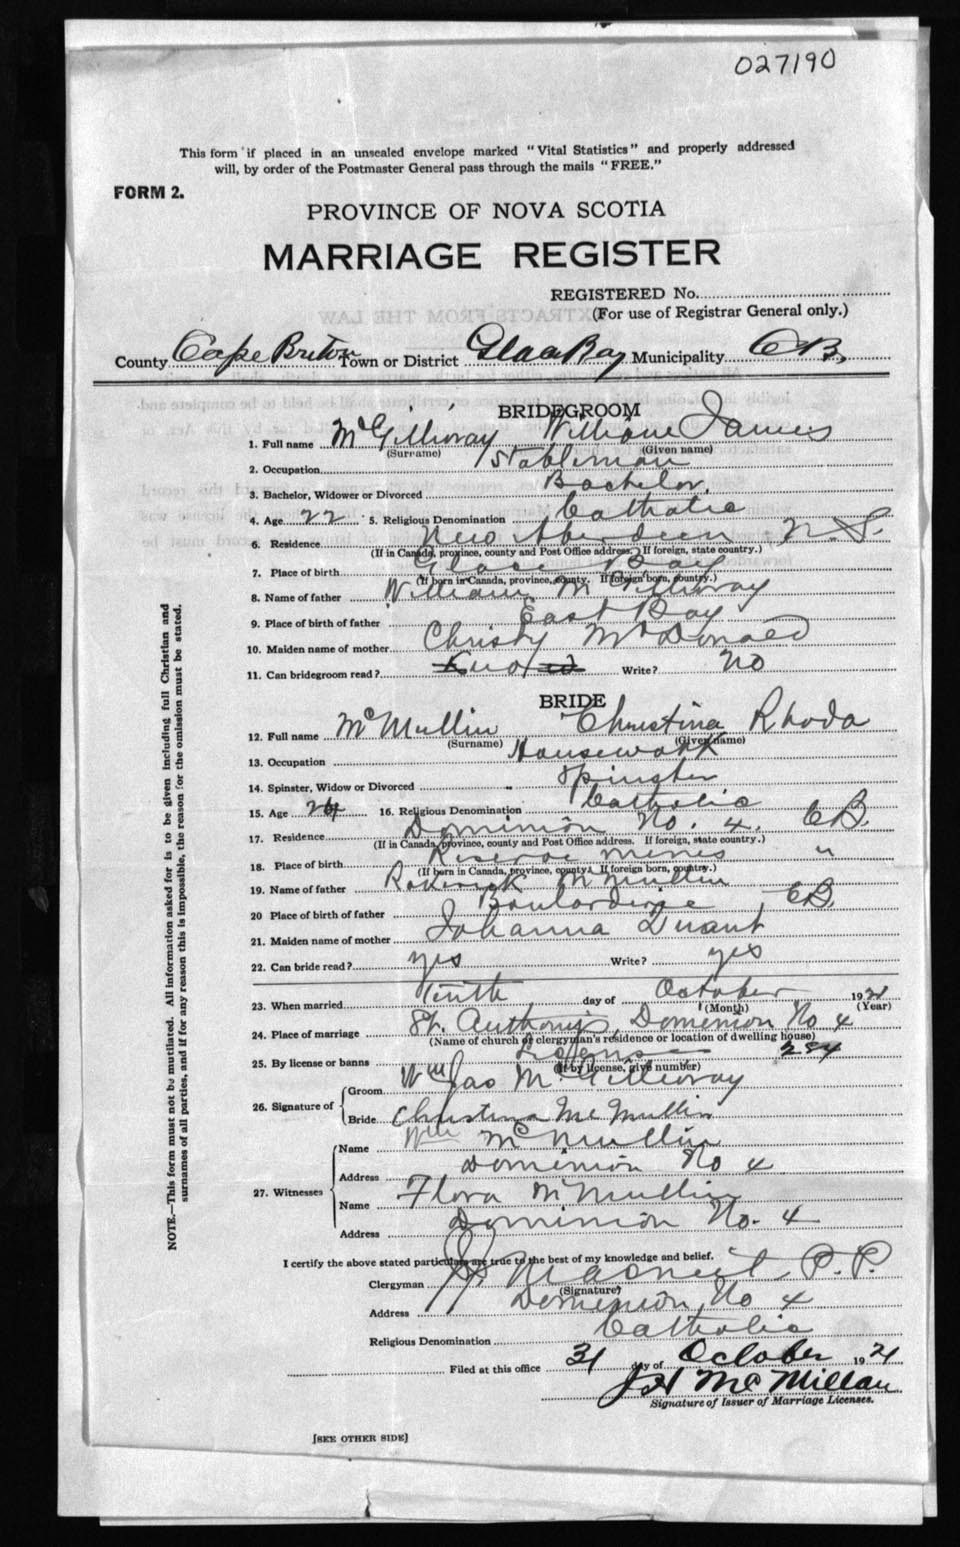 027190
This form if placed in an unsealed envelope marked "Vital Statistics" and properly addressed
will, by order of the Postmaster General pass through the mails "FREE."
FORM 2.
PROVINCE OF NOVA SCOTIA
MARRIAGE REGISTER
REGISTERED No.
(For use of Registrar General only.)
County Cape Breton Town or District Glace Bay Municipality CB.
BRIDEGROOM
1. Full name McGillivray William James
(Surname) (Given name)
2. Occupation Stableman
3. Bachelor, Widower or Divorced Bachelor.
4. Age 22 5. Religious Denomination Catholic
6. Residence New Aberdeen N.S.
(If in Canada, province, county and Post Office address. If foreign, state country.)
7. Place of birth Glace Bay
(If born in Canada, province, county. If foreign born, country.)
8. Name of father William McGillivray
9. Place of birth of father East Bay
10. Maiden name of mother Christy McDonald
11. Can bridegroom read? no Write? no
BRIDE
12. Full name McMullin Christina Rhoda
(Surname) (Given name)
13. Occupation Housework
14. Spinster, Widow or Divorced Spinster
15. Age 24 16. Religious Denomination Catholic
17. Residence Dominion No. 4. CB.
(If in Canada, province, county and Post Office address. If foreign, state country.)
18. Place of birth Reserve Mines "
(If born in Canada, province, county. If foreign born, country.)
19. Name of father Roderick McMullin
20 Place of birth of father Boularderie CB.
21. Maiden name of mother Johanna
22. Can bride read? yes Write? yes
23. When married Tenth day of October 1921
(Month) (Year)
24. Place of marriage St. Anthony's, Dominion No 4
(Name of church or clergyman's residence or location of dwelling house)
25. By license or banns License 284
(If by license, give number)
26. Signature of Groom Wm Jas McGillivray
Bride Christina McMullin
27. Witnesses Name Wm McMullin
Address Dominion No 4
Name Flora McMullin
Address Dominion No. 4
I certify the above stated particulars are true to the best of my knowledge and belief.
Clergyman MacNeil P.P.
(Signature)
Address Dominion, No 4
Religious Denomination Catholic
Filed at this office 31 day of October 1921
JH McMillan
Signature of Issuer of Marriage Licenses.
[SEE OTHER SIDE]
NOTE.—This form must not be mutilated. All information asked for is to be given including full Christian and
surnames of all parties, and if for any reason this is impossible, the reason for the omission must be stated.